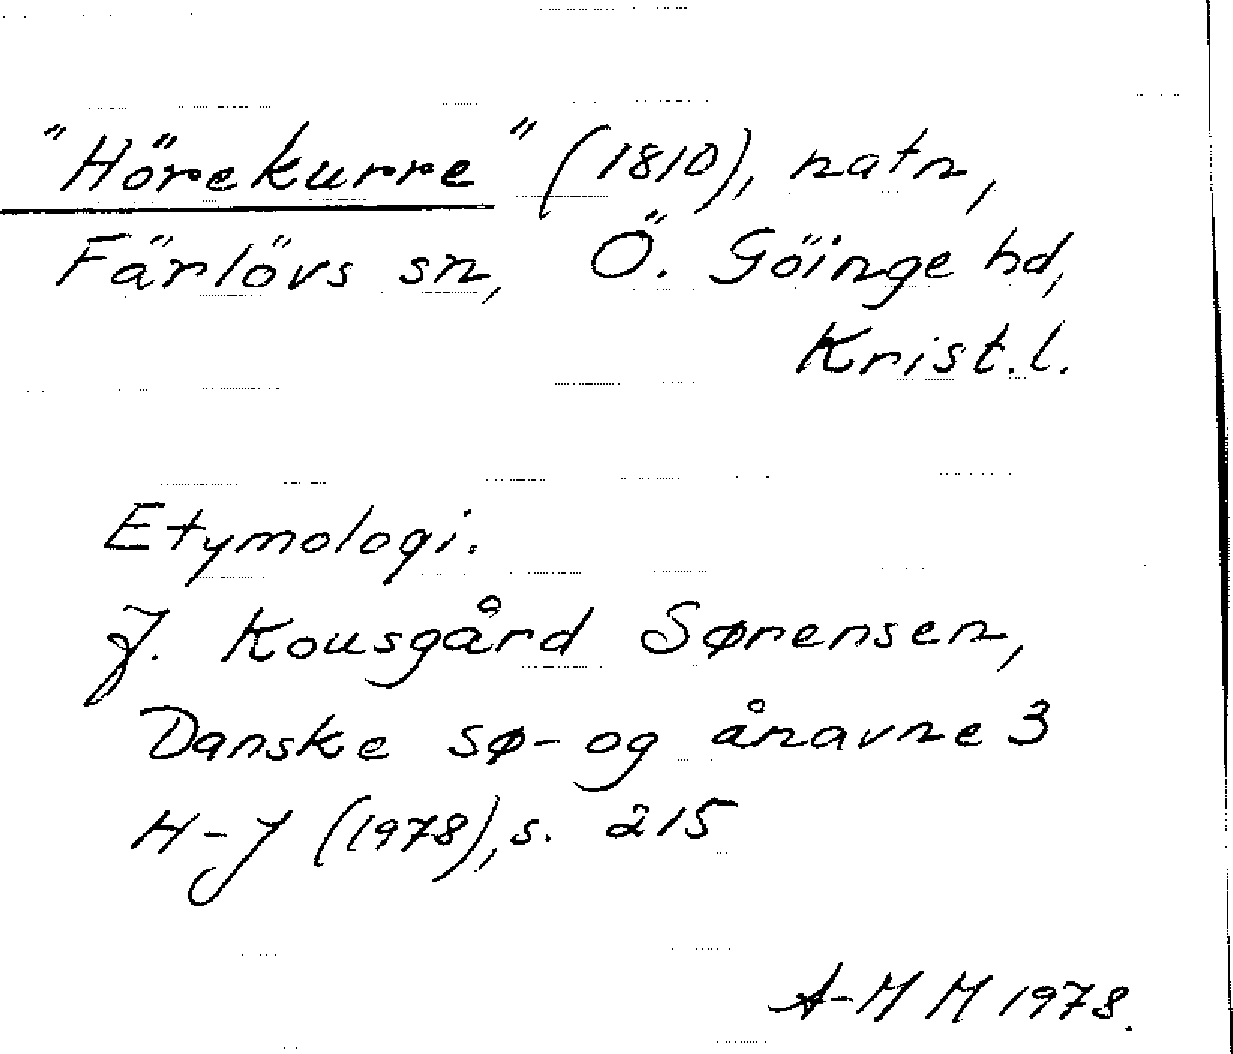 "Hörekurre" (1810), natn,
Färlövs sn, Ö. Göinge hd,
Krist.l.
Etymologi.
J. Kousgård Sørensen,
Danske sø- og ånavne 3
H-J (1978), s. 215
A-M M 1978.